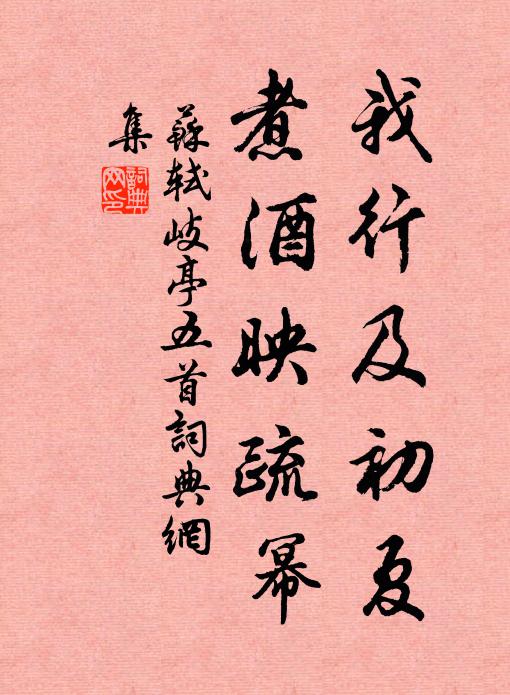 我行及初夏
煮酒映疏幂
蘇軾岐亭五首詞典網
集
詞典
网印